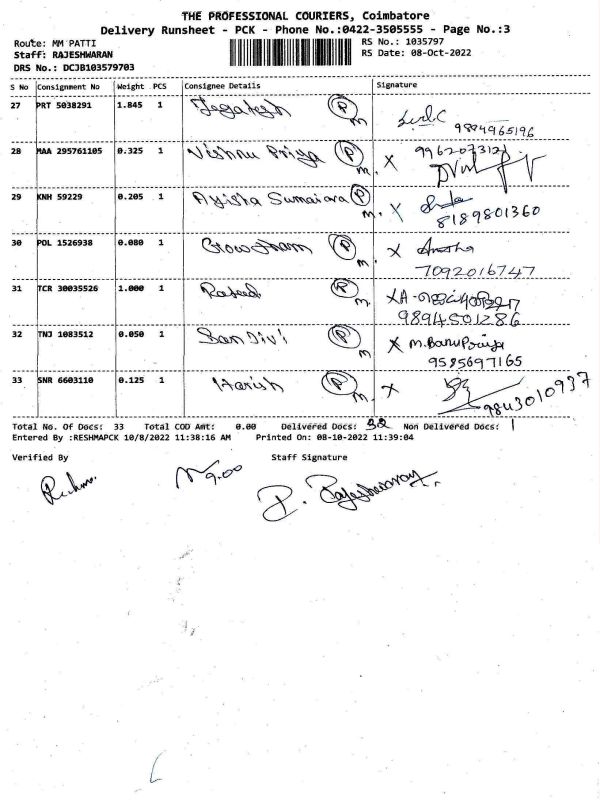 THE PROFESSIONAL COURIERS, Coimbatore
Delivery Runsheet - PCK - Phone No.:0422-3505555 - Page No.:3
Route: MM PATTI RS No.: 1035797
Staff: RAJESHWARAN RS Date: 08-Oct-2022
DRS No.: DCJB103579703
S No Consignment No Weight PCS Consignee Details Signature
27 PRT 5038291 1.845 1 Jegatesh P m
9884965196
28 MAA 295761105 0.325 1 Vishnu Priya P m. X 9962073121
29 KNH 59229 0.205 1 Ayisha Sumaiara P m. X
8189801360
30 POL 1526938 0.080 1 Gowtham P m. X Anusha
7092016747
31 TCR 30035526 1.000 1 Raseed P m. X A-
9894501286
32 TNJ 1083512 0.050 1 San Divi P m X M.BanuPriya
9585697165
33 SNR 6603110 0.125 1 Harish P m. X
9843010937
Total No. Of Docs: 33 Total COD Amt: 0.00 Delivered Docs: 32 Non Delivered Docs: 1
Entered By :RESHMAPCK 10/8/2022 11:38:16 AM Printed On: 08-10-2022 11:39:04
Verified By Staff Signature
9.00
P. Rajeshwaran